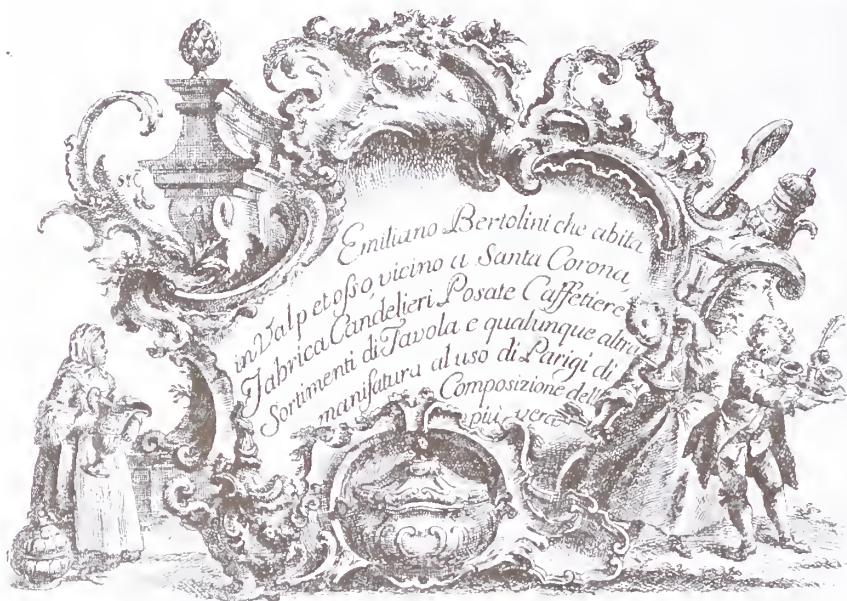 Emiliano Bertolini che abita
in Valpetosso, vicino a Santa Corona,
Fabrica Candelieri Posate Caffetiere
Sortimenti di Tavola e qualunque altra
manifatura al uso di Parigi di
Composizione dell
più vera